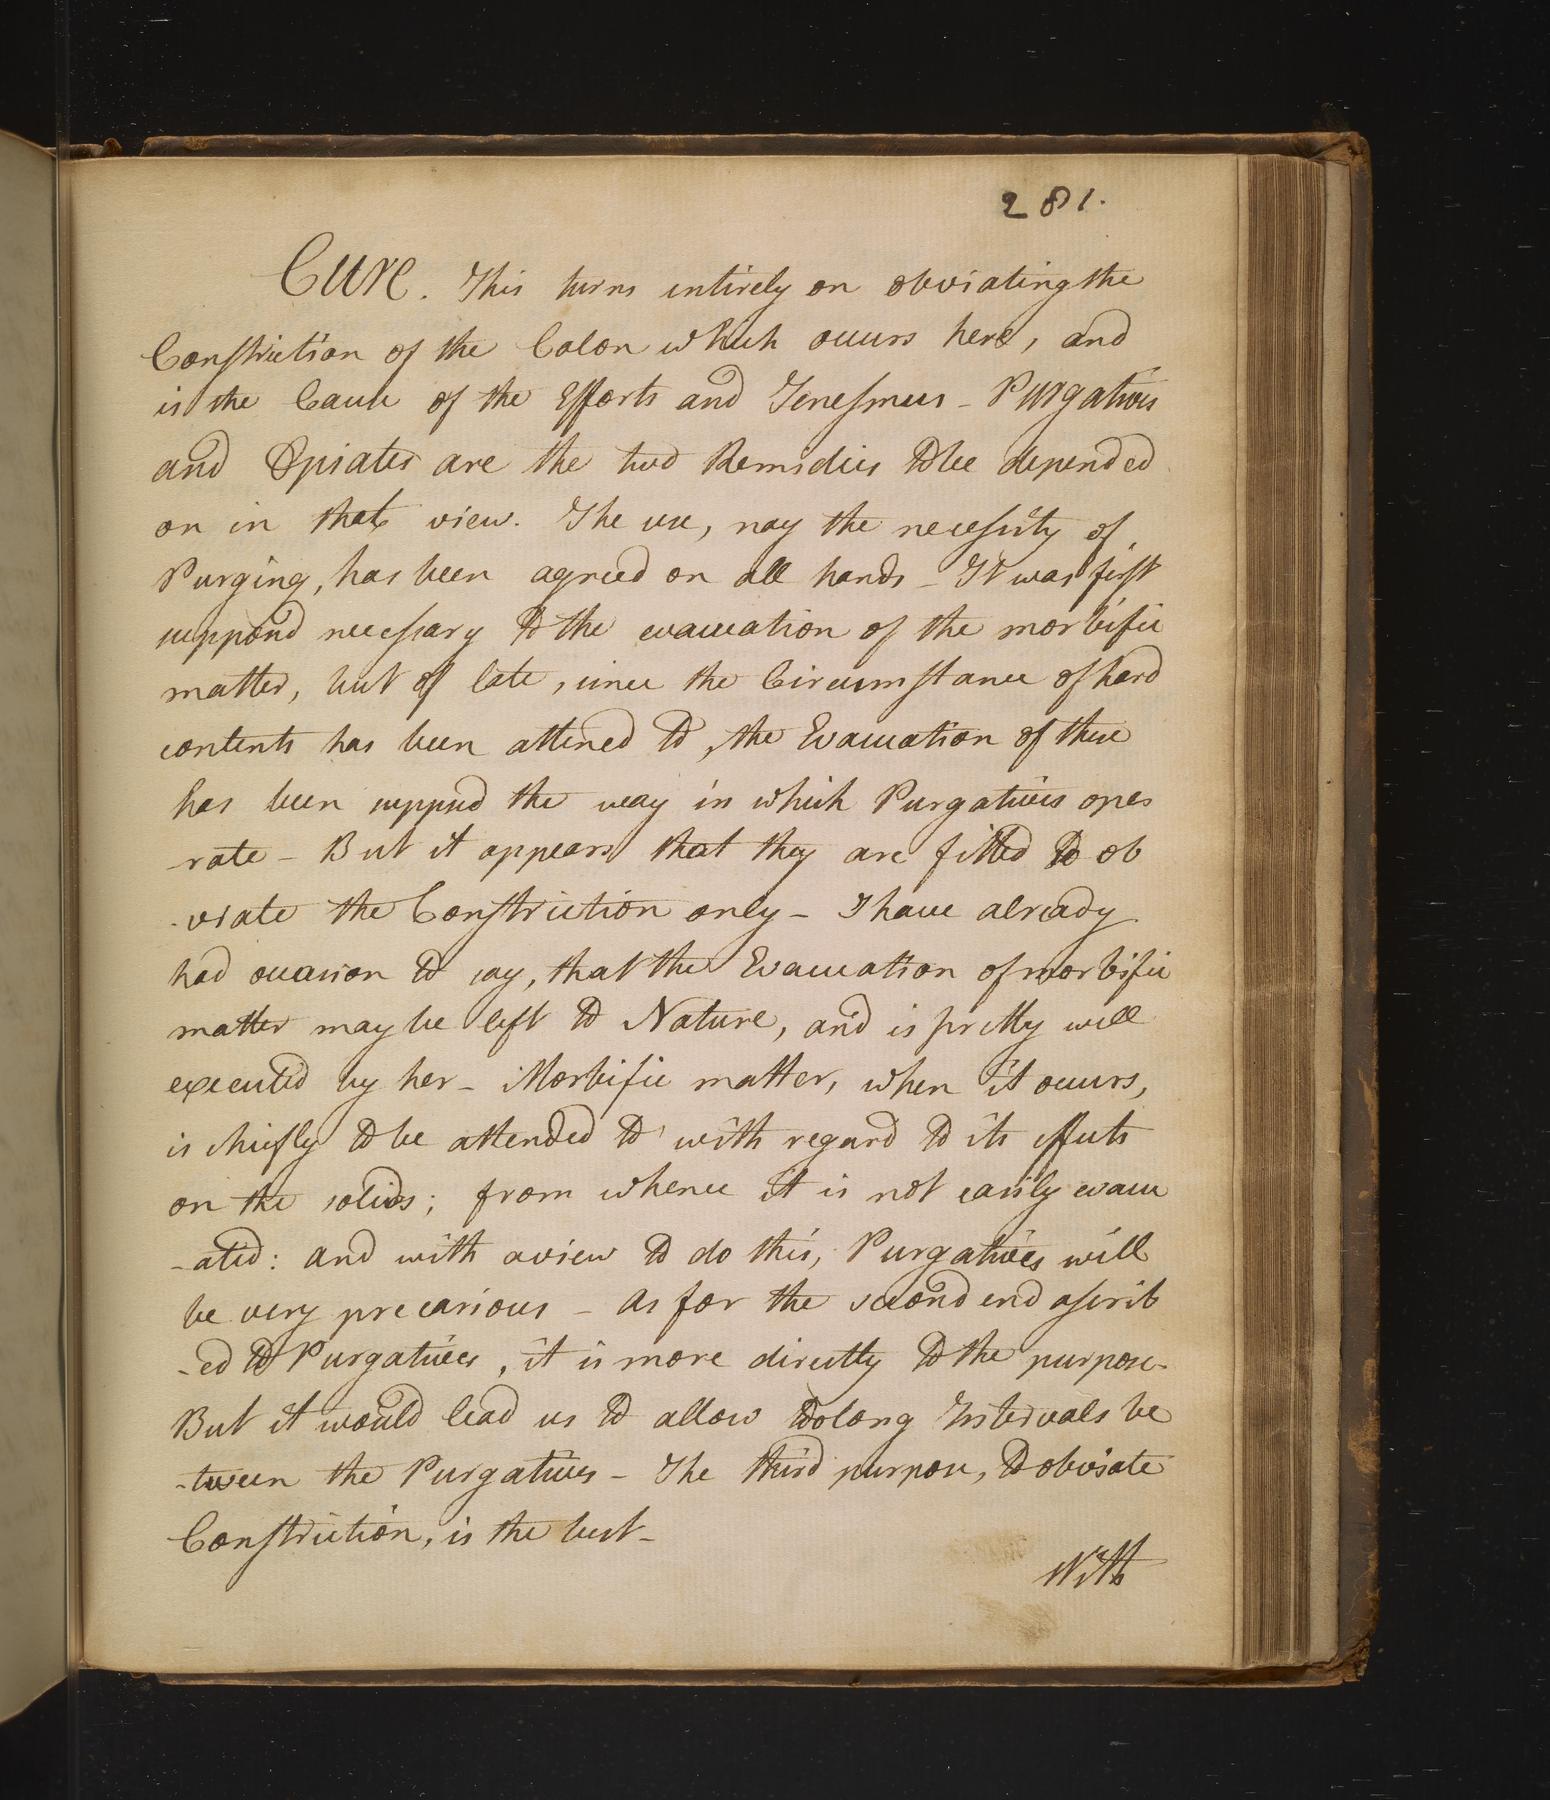 281.
Cure. This turns intirely on obviating the
Constriction of the Colon which occurs here, and
is the Cause of the Efforts and Tenesmus - Purgatives
and Opiates are the two Remidies to be depended
on in that view. The use, nay the necessity of
Purging, has been agreed on all hands - It was first
supposd necessary to the evacuation of the morbific
matter, but of late, since the Circumstance of hard
contents has been attined to, the Evacuation of these
has been suppsd the way in which Purgatives ope
rate - But it appears that they are fitted to ob
-viate the Constriction only - I have already
had occasion to say, that the Evacuation of morbific
matter may be left to Nature, and is pretty well
executed by her - Morbific matter, when it occurs,
is chiefly to be attended to with regard to its effects
on the solids; from whence it is not easily evacu
-ated: and with a view to do this, Purgatives will
be very precarious - As for the second end ascrib
-ed to Purgatives, it is more directly to the purpose-
But it would lead us to allow too long Intervals be
-tween the Purgatives - The third purpose, to obviate
Constriction, is the best -
With